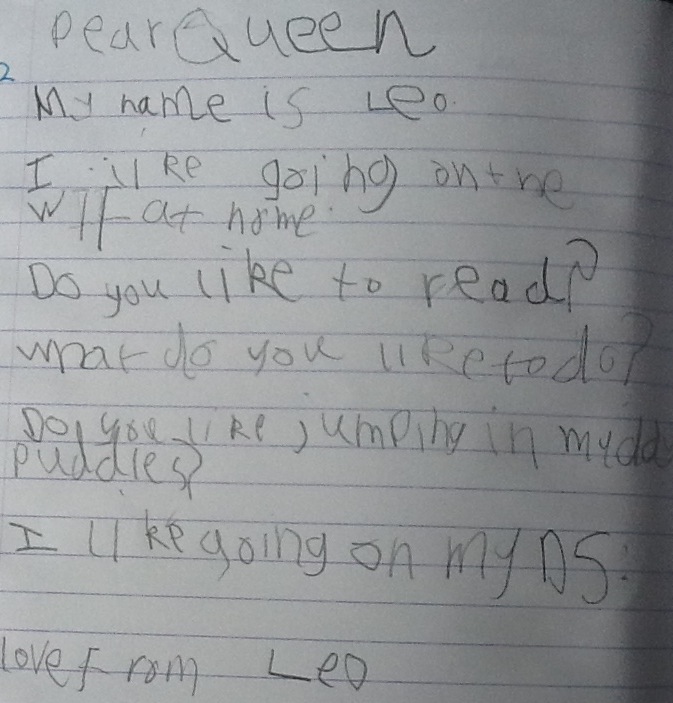 Dear Queen
2
My name is Leo.
I like going on the
wii at home.
Do you like to read?
what do you like to do?
Do you like jumping in muddy
puddles?
I like going on my DS.
love from Leo